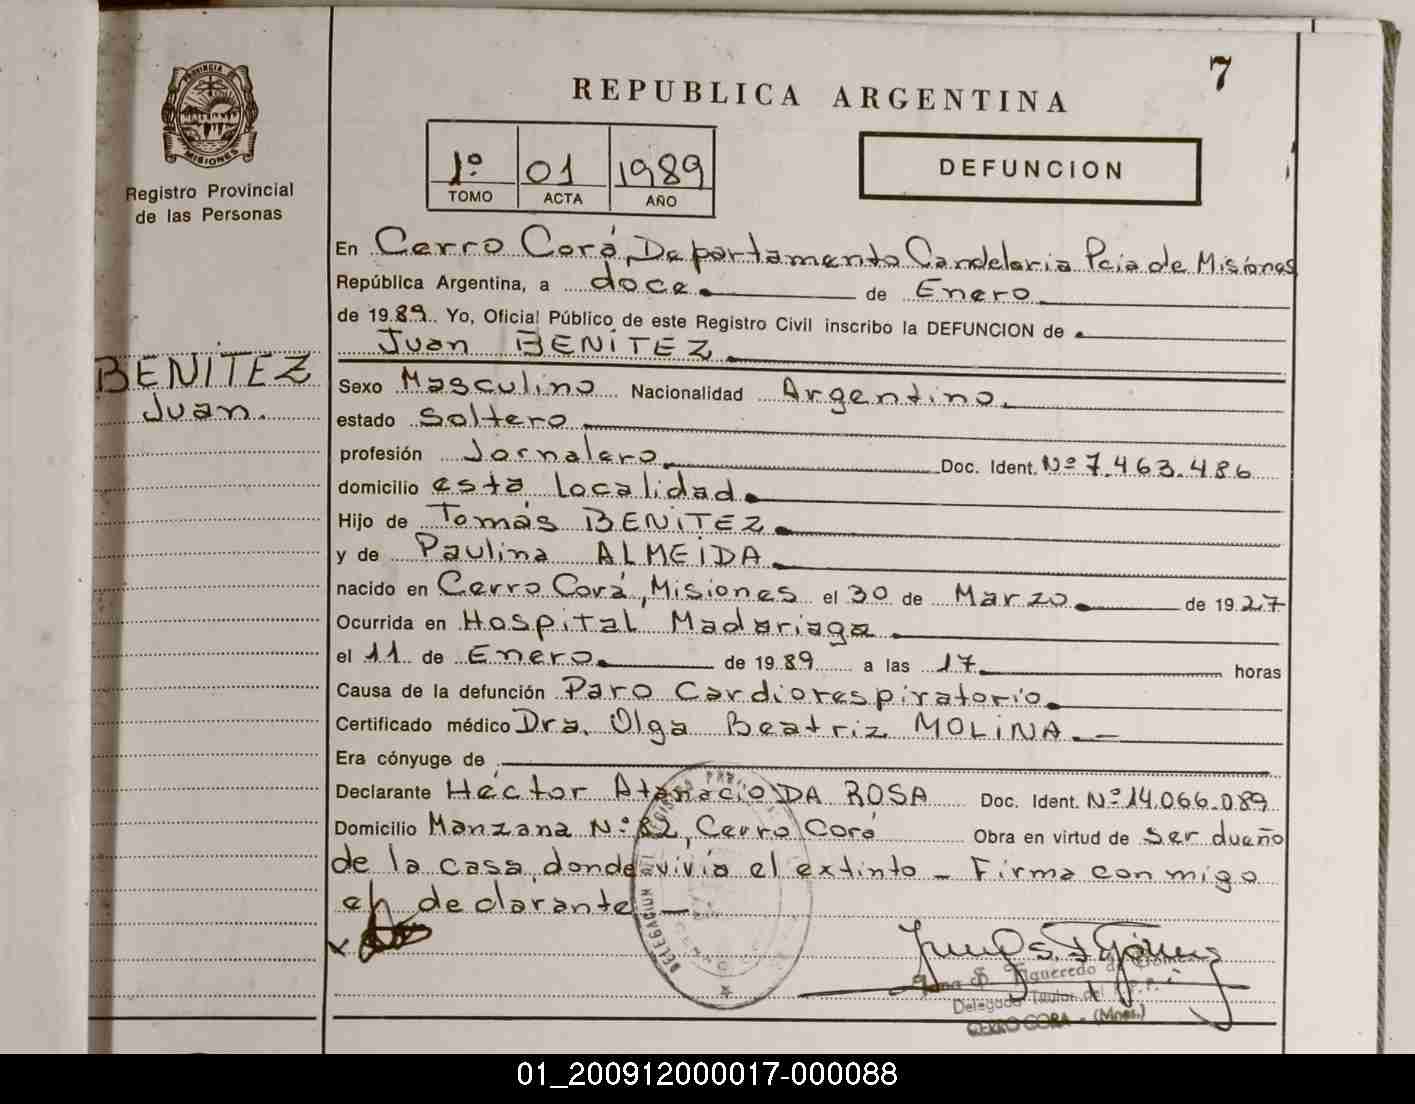 7
PROVINCIA D
MISIONES
Registro Provincial
de las Personas
REPUBLICA ARGENTINA
1º 01 1989
TOMO ACTA AÑO
DEFUNCION
En Cerro Corá, Departamento Candelaria Pcia de Misiones
República Argentina, a doce de Enero
de 1989 Yo, Oficial Público de este Registro Civil inscribo la DEFUNCION de
Juan BENITEZ
BENITEZ
Juan.
Sexo Masculino Nacionalidad Argentino
estado Soltero
profesión Jornalero Doc. Ident. Nº 7.463.486
domicilio esta localidad
Hijo de Tomás BENITEZ
y de Paulina ALMEIDA
nacido en Cerro Corá, Misiones el 30 de Marzo de 1927
Ocurrida en Hospital Madariaga
el 11 de Enero de 1989 a las 17 horas
Causa de la defunción Paro Cardiorespiratorio
Certificado médico Dra. Olga Beatriz MOLINA.—
Era cónyuge de
Declarante Héctor Atanacio DA ROSA Doc. Ident. Nº 14.066.089
Domicilio Manzana Nº 82, Cerro Corá Obra en virtud de ser dueño
de la casa donde vivía el extinto — Firma conmigo
el declarante —
x
DELEGACION
Figueredo de
Delegada Titular del
CERRO CORA - (Mnes.)
01_200912000017-000088